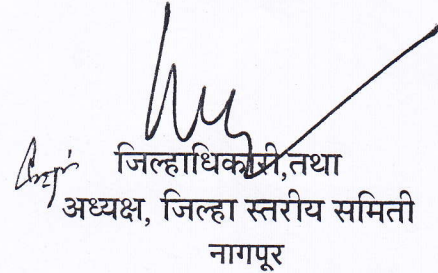 जिल्हाधिकारी,तथा
अध्यक्ष, जिल्हा स्तरीय समिती
नागपूर